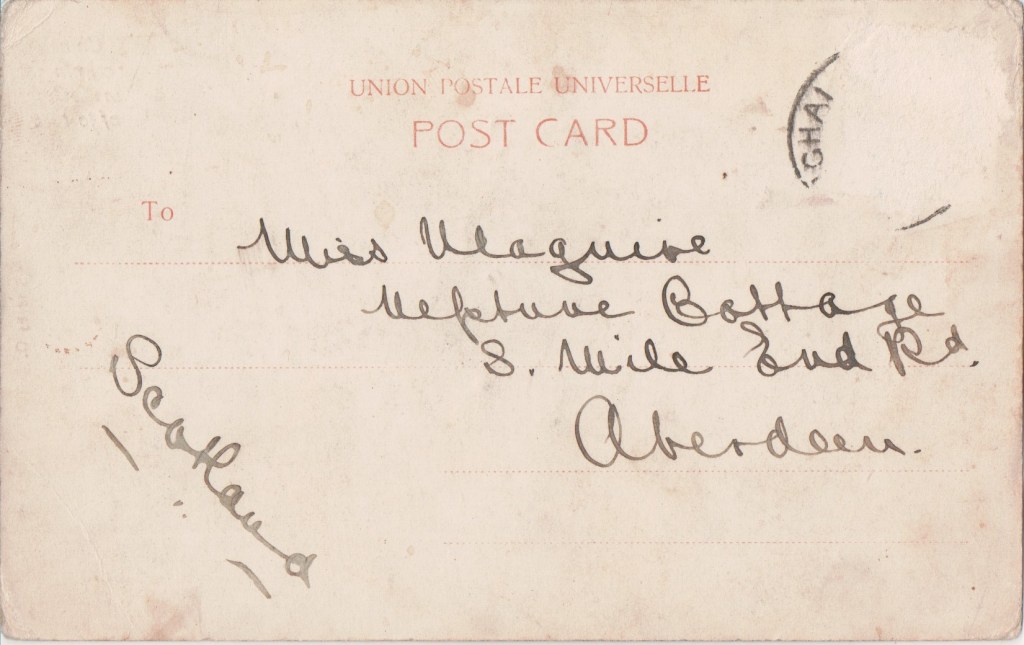 UNION POSTALE UNIVERSELLE
POST CARD
GHAI
To
Miss Maguire
Neptune Cottage
S. Mile End Rd.
Aberdeen.
Scotland